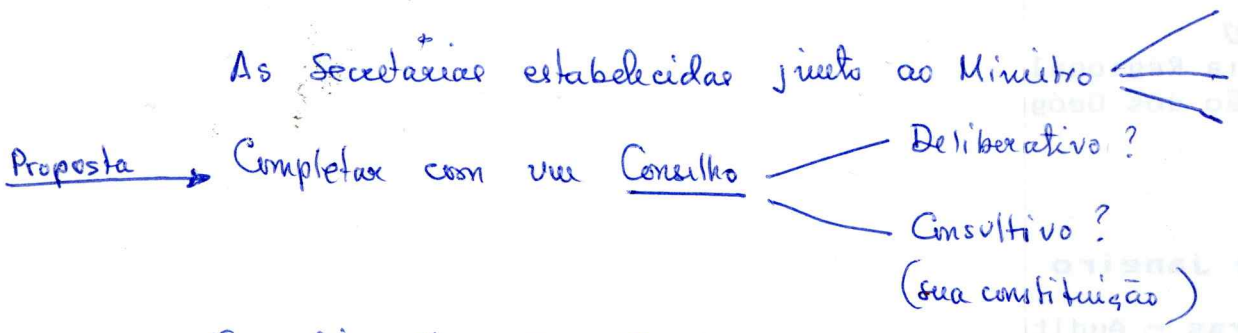 As Secretarias estabelecidas junto ao Ministro
Proposta Completar com um Conselho
Deliberativo?
Consultivo?
(sua constituição)